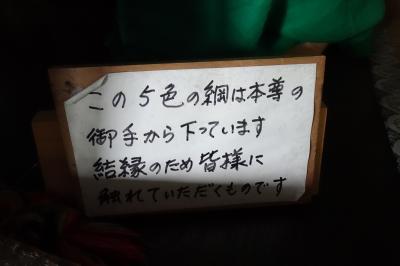 この5色の綱は本尊の
御手から下っています
結縁のため皆様に
触れていただくものです